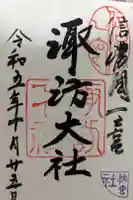 信濃國一之宮
諏訪大社
令和五年十月廿五日